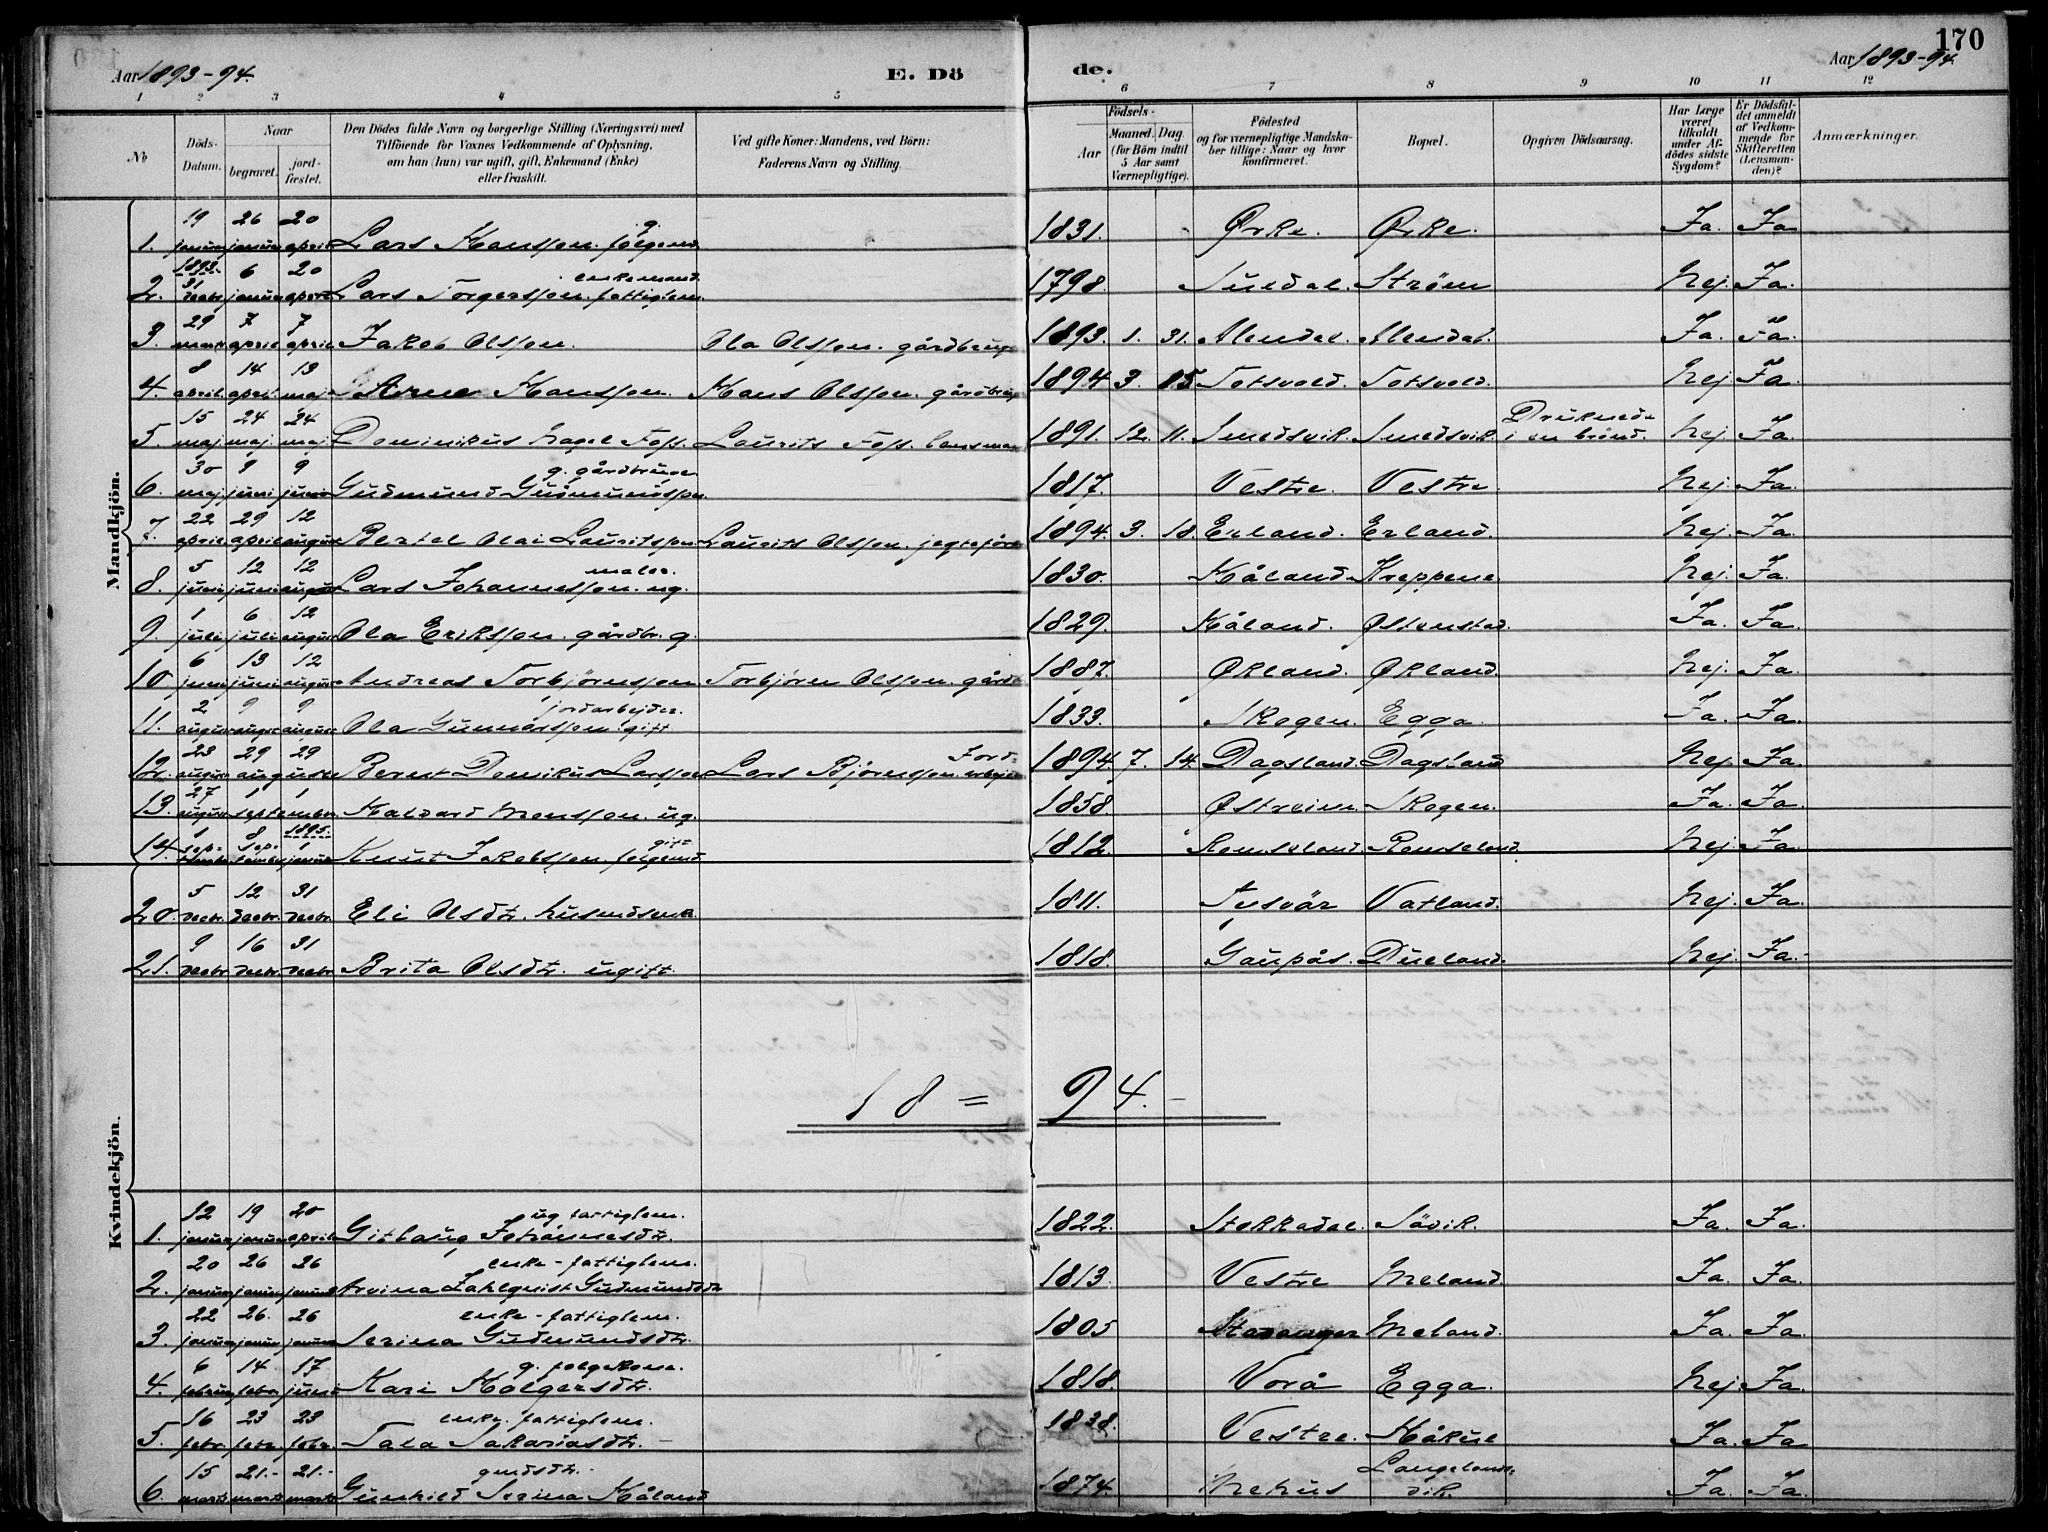 170
Aar 1893-94. E. Dö de. Aar 1893-94.
1 2 3 4 5 6 7 8 9 10 11 12
No
Döds-Datum.
Naar begravet. jordfæstet.
Den Dödes fulde Navn og borgerlige Stilling (Næringsvei) med Tilföiende for Voxnes Vedkommende af Oplysning, om han (hun) var ugift, gift, Enkemand (Enke) eller fraskilt.
Ved gifte Koner: Mandens, ved Börn: Faderens Navn og Stilling.
Födsels- Aar Maaned. Dag. (for Börn indtil 5 Aar samt Værnepligtige).
Födested og for værnepligtige Mandskaber tillige: Naar og hvor konfirmeret.
Bopæl.
Opgiven Dödsaarsag.
Har Læge været tilkaldt under Afdödes sidste Sygdom?
Er Dödsfaldet anmeldt af Vedkommende for Skifteretten (Lensmanden)?
Anmærkninger.
Mandkjön.
1. 19 januar 26 januar 20 april Lars Hansson. g. følgemd. 1831. Ørke. Ørke. Ja. Ja
2. 1893. 31 decbr. 6 januar 20 april Lars Torgersson. enkemand. fattiglem. 1798. Suldal. Strøm Nej. Ja.
3. 29 mars 7 april 7 april Jakob Olsson. Ola Olsson. gårdbrug 1893. 1. 31. Alendal. Alendal. Ja. Ja.
4. 8 april. 14 april. 13 maj Arne Hansson. Hans Olsson. gårdbrug 1894 3. 15 Totsvold. Totsvold. Nej Ja.
5. 15 maj 24 maj. 24 maj Dominikus Nagel Foss. Laurits Foss. lensman 1891. 12. 11. Smedsvik. Smedsvik. Druknede i en brønd. Nej Ja.
6. 30 maj 9 juni 9 juni Gudmund Gudmundsson. g. gårdbruger 1817. Vestre. Vestre Nej. Ja.
7. 22 april 29 april 12 august Bertel Olai Lauritsson Laurits Olsson. jegtefører 1894. 3. 18. Erland. Erland. Nej. Ja.
8. 5 juni 12 juni 12 august Lars Johannesson. maler. ug. 1830. Håland. Kreppene. Nej. Ja.
9. 1 juli 6 juli 12 august Ola Eriksson. gårdbr. g. 1829. Håland. Østenstad. Ja. Ja.
10 6 juni 13 juni 12 august Andreas Torbjørnsson Torbjørn Olsson. gård 1887. Økland. Økland. Nej. Ja.
11. 2 august 9 august 9 august Ola Gunnarsson. jordarbejder. gift. 1833. Skogen. Egga. Ja. Ja.
12. 23 august 29 29 august Bernt Domikus Larsson Lars Bjørnsson. Jordarbejd 1894. 7. 14. Dagsland. Dagsland Nej. Ja.
13. 27 august 1 1 september Halvard Monsson. ug. 1858. Østreim. Skogen. Ja. Ja.
14. 1 september 8 september 1895. 1 januar Knut Jakobsson. gift følgemd 1812. Ramseland. Ramseland. Nej. Ja.
20. 5 decbr. 12 decbr. 31 decbr Eli Olsdtr. husmdsenk. 1811. Tysvär Vatland. Nej. Ja.
21. 9 decbr 16 decbr 31 decbr Brita Olsdtr. ugift. 1818. Gaupås. Dueland. Nej. Ja.
18 = 94. -
Kvindekjön.
1. 12 januar 19 januar 20 april Gitlaug Johannesdtr. ug fattiglem. 1822. Stokkadal. Søvik. Ja. Ja.
2. 20 januar 26 januar 26 januar Arvina Zahlquist Gudmundsdtr enke - fattiglem. 1813. Vestre Meland. Ja. Ja.
3. 22 januar 26. januar 26 januar Serina Gudmundsdtr. enke - fattiglem. 1805 Stavanger Meland. Ja. Ja.
4. 6 februar 14 febr. 17 juni Kari Holgersdtr. g. følgekone. 1818. Vorå Egga. Nej Ja.
5. 16 febr. 23 febr 23 febr. Tala Sakariasdtr. enke. fattiglem. - 1838. Vestre. Håkul Ja. Ja
6. 15 marts 21.- marts 21.- marts Gunhild Serina Håland gmdsdtr. 1874. Nehus Langelandsvik. Ja. Ja.